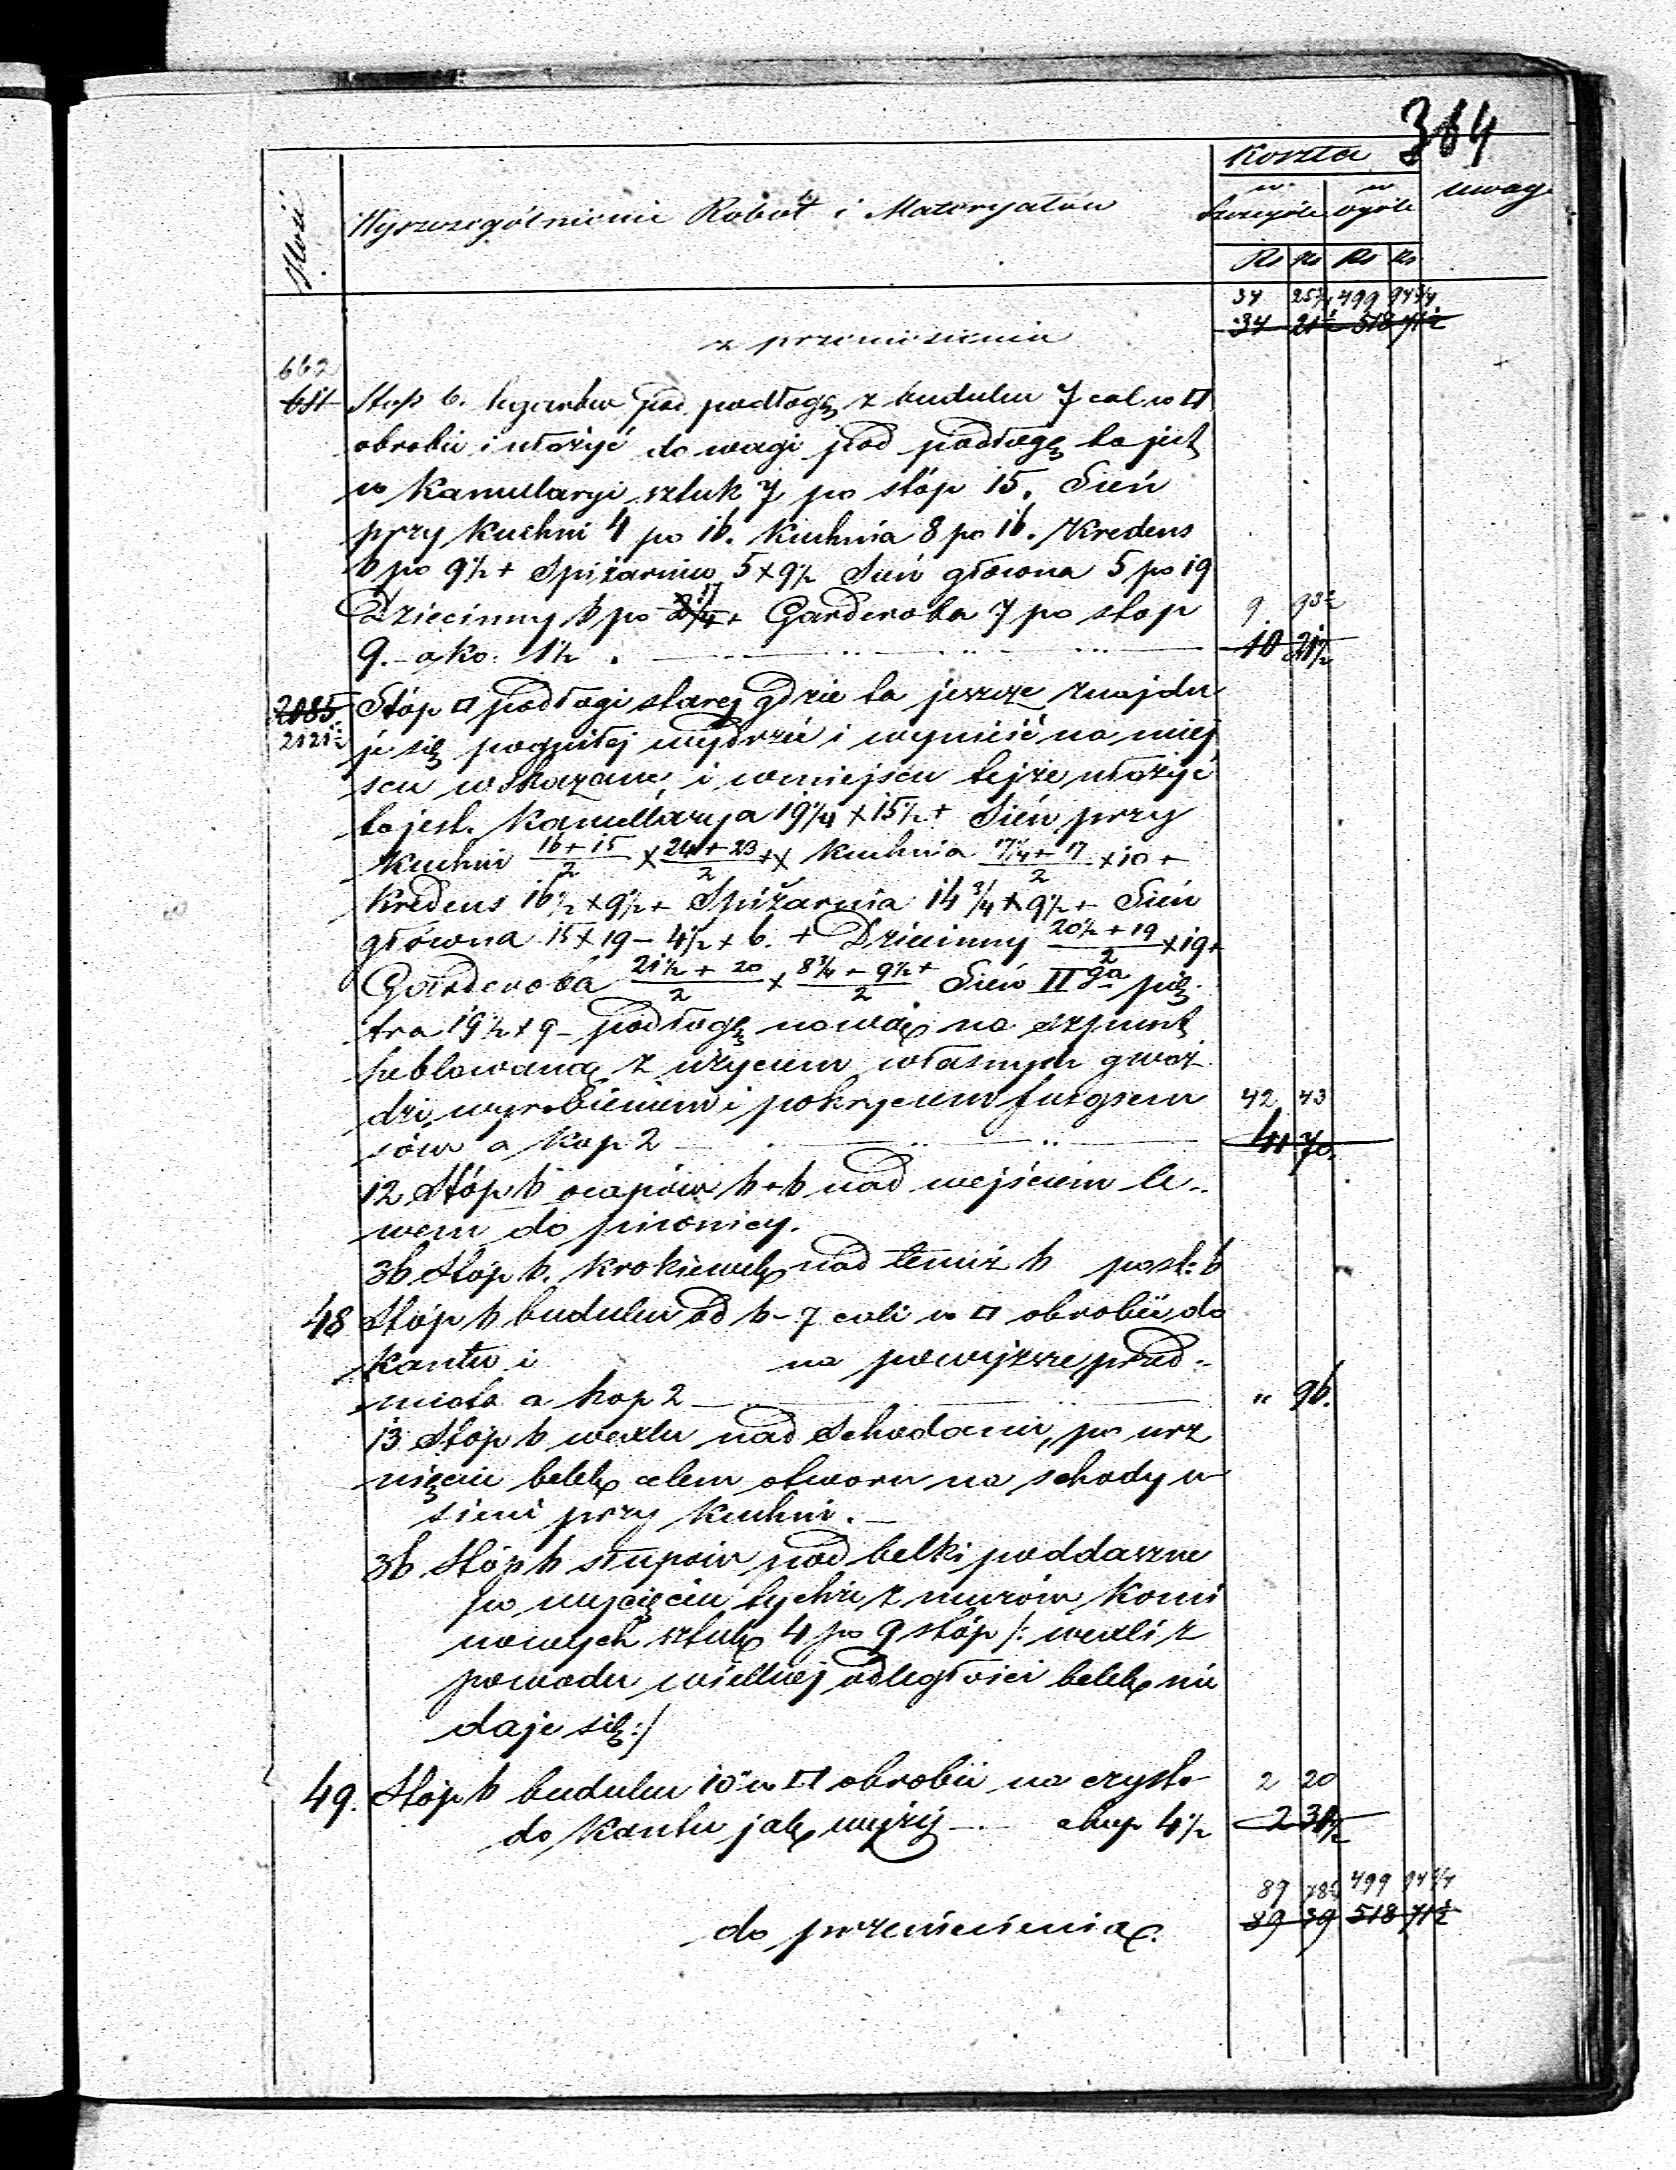 364
Koszta
Ilość
Wyszczególnienie Robót i Materyałów
w szczególe
w ogóle
uwagi
Rs Ko Rs Ko
z przeniesienia
34 25¾ 499 94¾
34 21½ 518 71½
662
651
Stóp b. legarów pod podłogę z budulcu 7 cal w □
obrobić i ułożyć do wagi pod podłogę to jest
w Kancellaryi sztuk 7 po stóp 15. Sień
przy Kuchni 4 po 16. Kuchnia 8 po 16. Kredens
6 po 9½ + Spiżarnia 5 x 9½ Sień główna 5 po 19
Dziecinny 6 po 19 + Garderoba 7 po stóp
9. a ko. 1½
9 93½
10 21½
2085
2121½
Stóp □ podłogi starej gdzie ta jeszcze znajdu
je się pognitej wydrzeć i wynieść na miej
sce wskazane, i w miejscu tejże ułożyć
to jest. Kancellarya 19¼ x 15½ + Sień przy
Kuchni 16+15/2 x 24+23/2 + x Kuchnia 17¼+17/2 x 10 +
Kredens 16½ x 9½ + Spiżarnia 14¾ x 9½ + Sień
główna 15 x 19 – 4½ x 6. + Dziecinny 20½+19/2 x 19 +
Garderoba 21½+20/2 x 8¾+9½/2 + Sień IIgo pię
tra 19½ x 9 – podłogę nową na szpunt
heblowaną z użyciem własnym gwoź
dzi, wyrobieniem i pokryciem
sów a kop 2
42 43
41 70
12 Stóp b ocapów 6 + 6 nad wejściem le..
wem do piwnicy.
36 Stóp b. Krokiewek nad temiż 6 po st: 6
48 Stóp b budulcu od 6 – 7 cali w □ obrobić do
Kantu i na powyższe przed-
miota a kop 2
" 96.
13 Stóp b wexlu nad Schodami, po urz
nięciu belek celem otworu na schody w
sieni przy Kuchni.
36 Stóp b słupów pod belki poddaszne
po wycięciu tychże z murów Komi
nowych sztuk 4 po 9 stóp /: wexli z
powodu wielkiej odległości belek nie
daje się :/
49. Stóp b budulcu 10" w □ obrobić na czysto
do Kantu jak wyżej a kop 4½
2 20
89 78½ 499 94¾
89 39 518 71½
do przeniesienia.